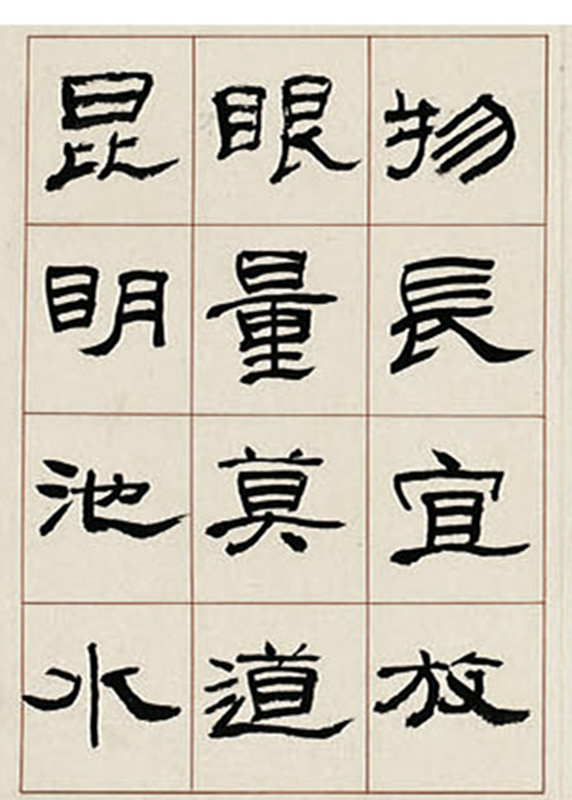 物長宜放
眼量莫道
昆明池水